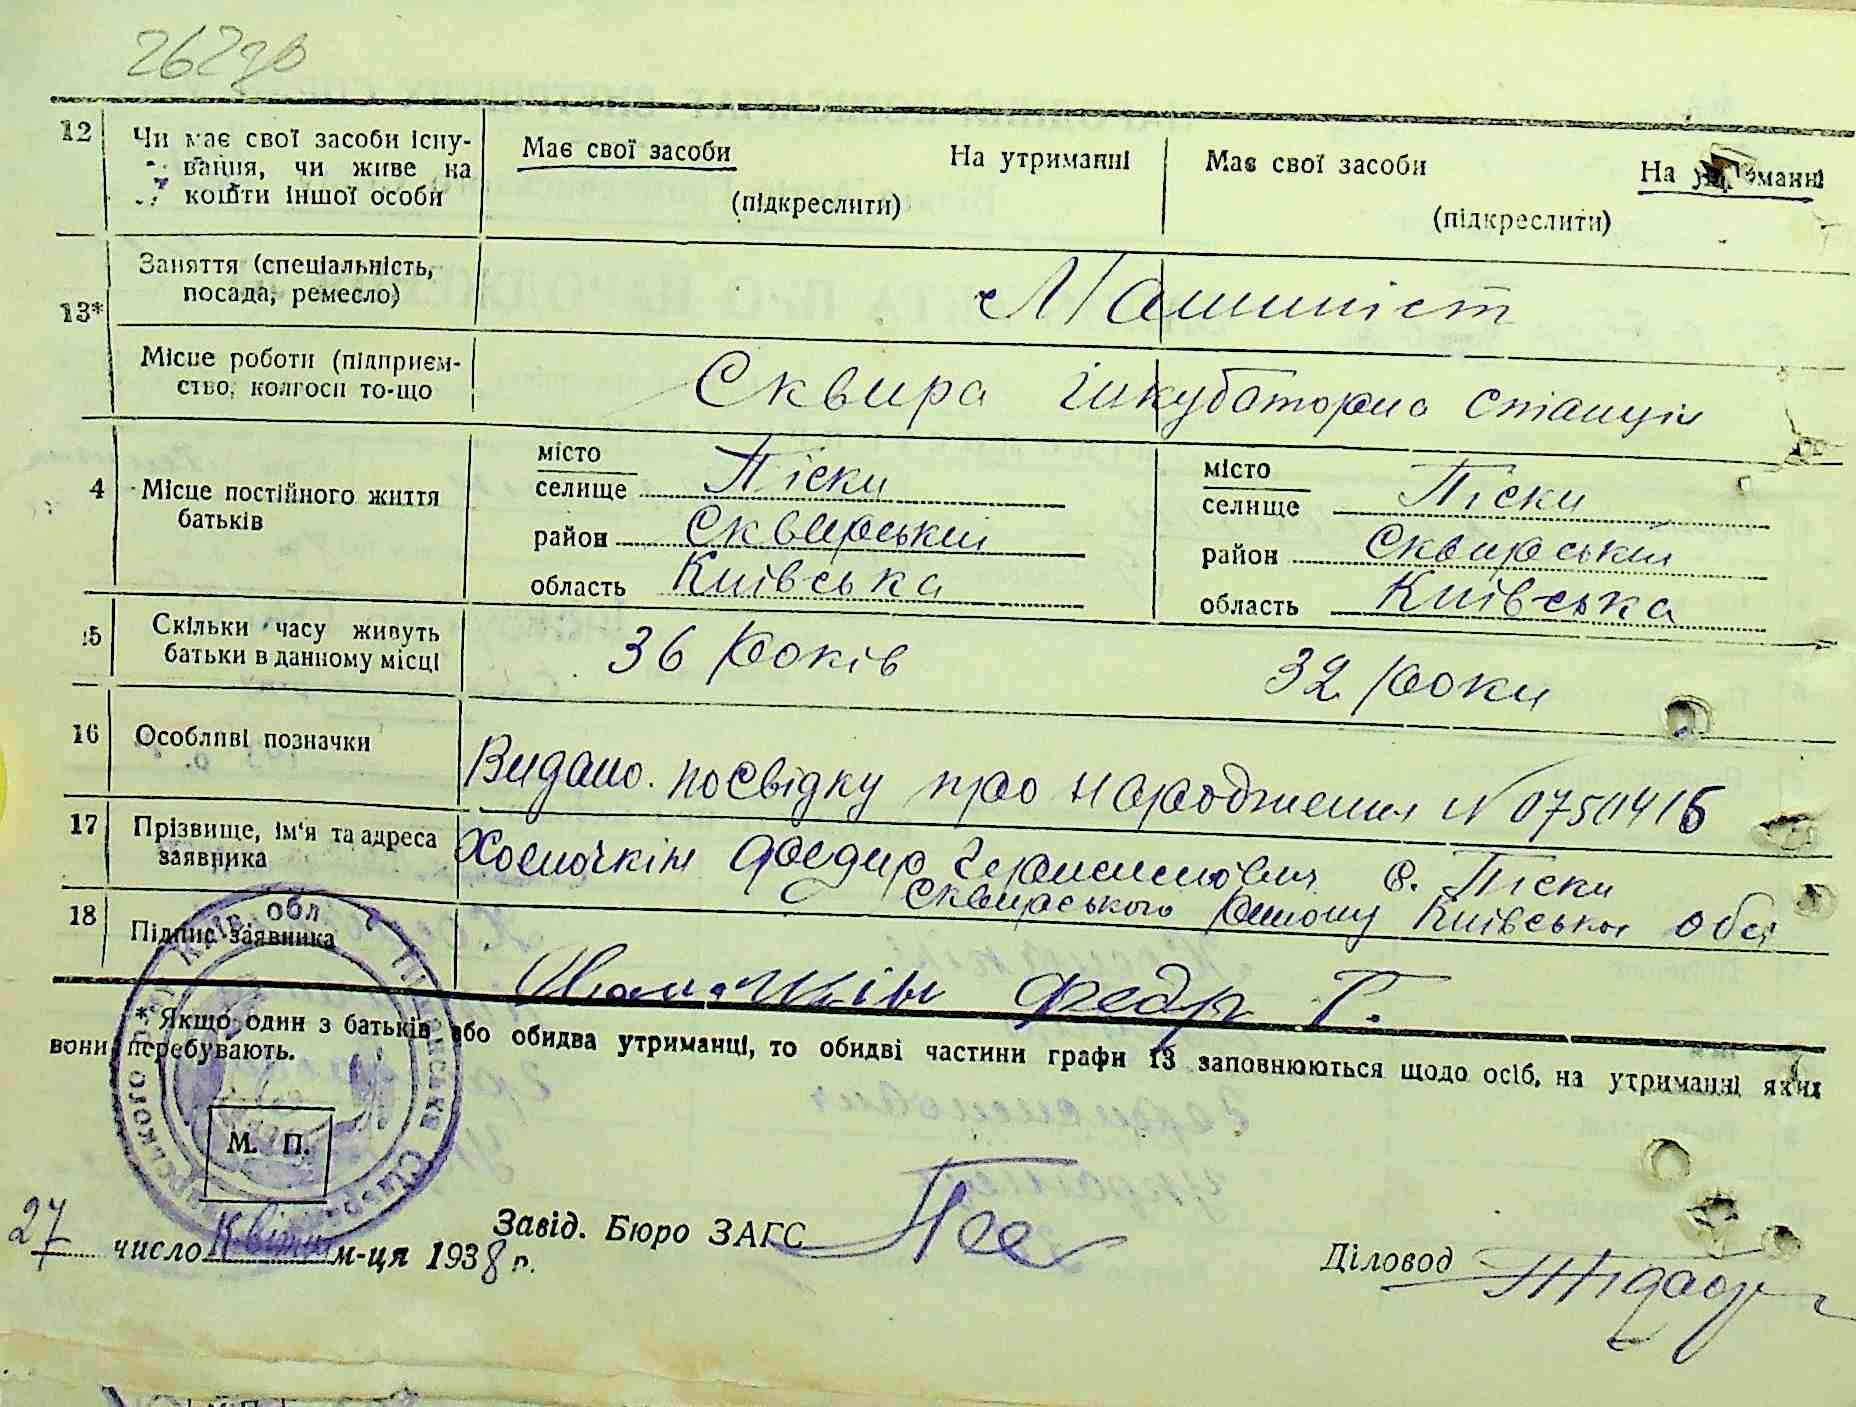 262зв
12 Чи має свої засоби існу-
вання, чи живе на
кошти іншої особи
Має свої засоби На утриманні
(підкреслити)
Має свої засоби На утриманні
(підкреслити)
13* Заняття (спеціальність,
посада, ремесло)
Машиніст
Місце роботи (підприєм-
ство, колгосп то-що
Сквира Інкубаторна станція
4 Місце постійного життя
батьків
місто
селище Піски
район Сквирський
область Київська
місто
селище Піски
район Сквирський
область Київська
5 Скільки часу живуть
батьки в данному місці
36 років 32 роки
16 Особливі позначки
Видано посвідку про народження N 0750416
17 Прізвище, ім'я та адреса
заявника
Федир с. Піски
Сквирського району Київської обл
18 Підпис заявника
Федр Г.
* Якщо один з батьків або обидва утриманці, то обидві частини графи 13 заповнюються щодо осіб, на утриманні яких
вони перебувають.
Київ. обл.
М. П.
27 число Квітня м-ця 1938 р.
Завід. Бюро ЗАГС
Діловод